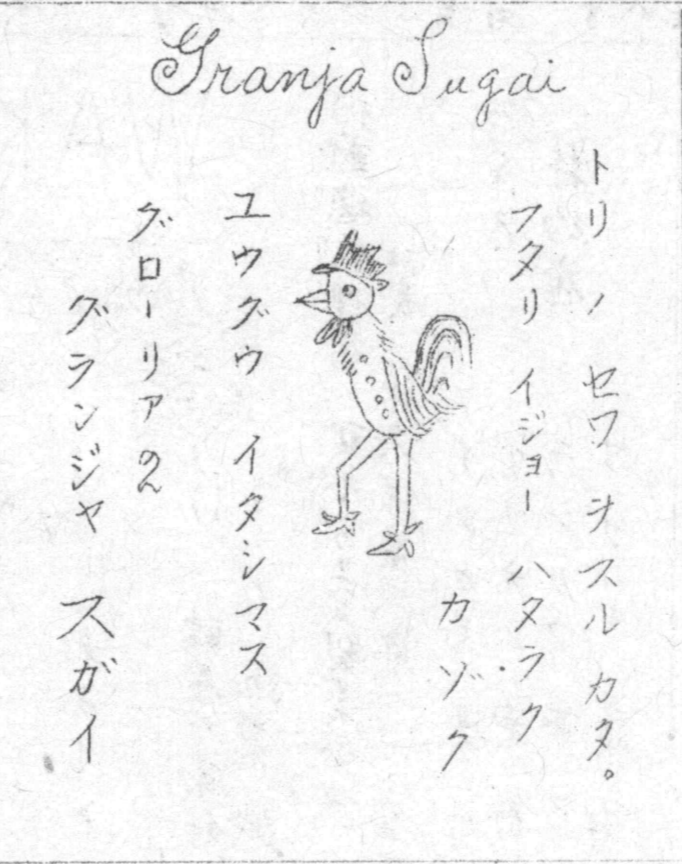 Granja Sugai
トリノ セワ ヲスル カタ。
フタリ イジョー ハタラク
カゾク
ユウグウ イタシマス
グローリアの
グランジャ スガイ